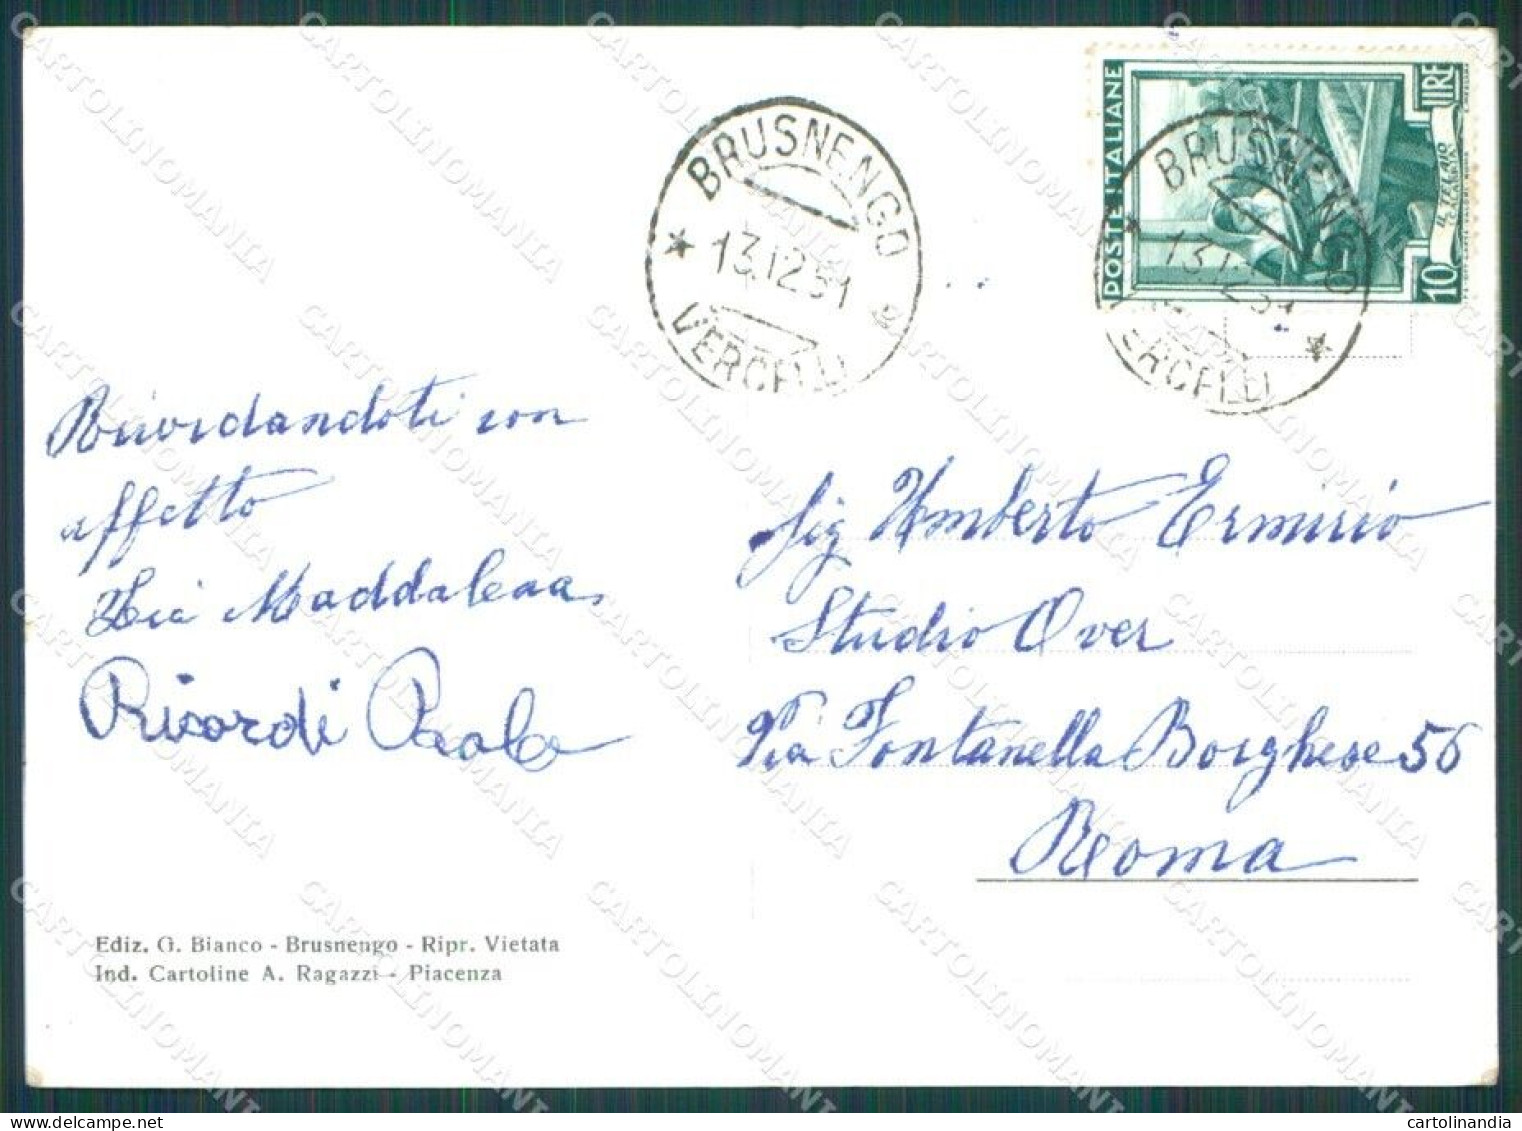 BRUSNENGO
13.12.51
VERCELLI
POSTE ITALIANE
LIRE
10
BRUSNENGO
13.12.51
VERCELLI
Ricordandoti con
affetto
Zia Maddalena
Ricordi Paola
Sig Umberto Ermirio
Studio Over
Via Fontanella Borghese 56
Roma
Ediz. G. Bianco - Brusnengo - Ripr. Vietata
Ind. Cartoline A. Ragazzi - Piacenza
CARTOLINOMANIA
delcampe.net
cartolinandia